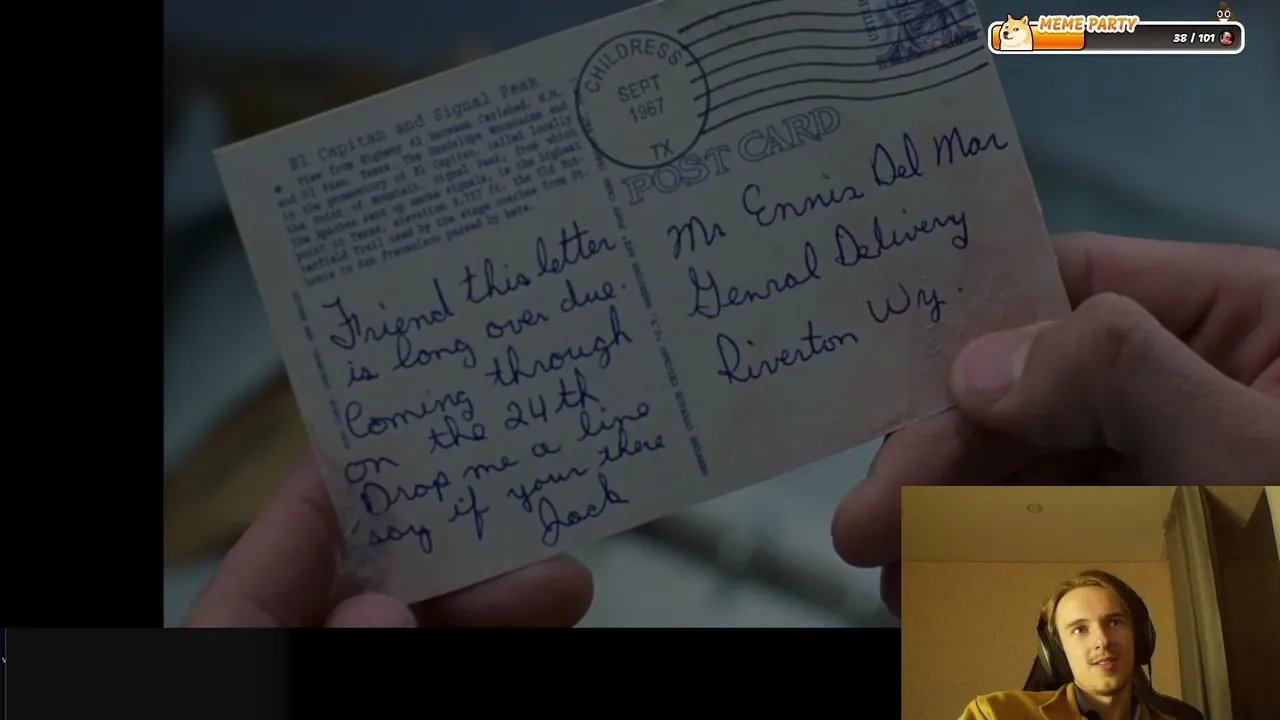 MEME PARTY
38 / 101
CHILDRESS
SEPT
1967
TX
El Capitan and Signal Peak
View from Highway 62 between Carlsbad, N.M.
and El Paso, Texas. The Guadalupe Mountains and
in the promontory of El Capitan, called locally
the Point of Mountain. Signal Peak, from which
the Apaches sent up smoke signals, is the highest
point in Texas, elevation 8,757 ft. the Old But-
terfield Trail used by the stage coaches from St.
Louis to San Francisco passed by here.
POST CARD
Friend this letter
is long over due.
Coming through
on the 24th
Drop me a line
say if your there
Jack
Mr Ennis Del Mar
Genral Delivery
Riverton Wy.